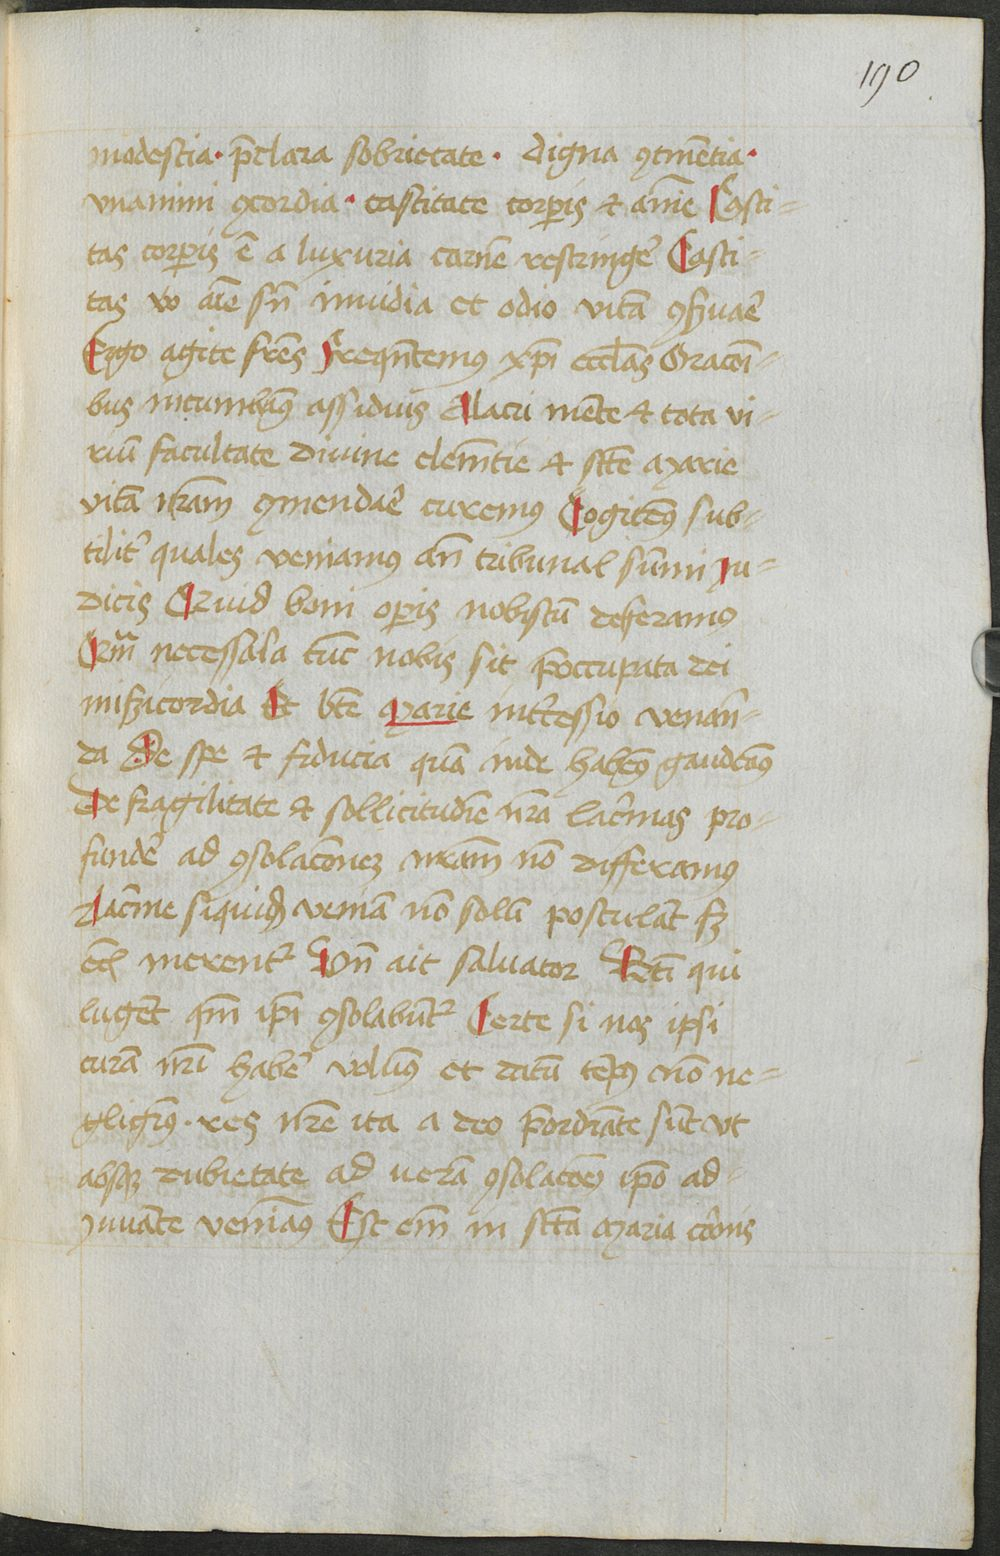 190
modestia · p̄clara sobrietate · digna ꝯtinētia ·
vnanimi ꝯcordia · castitate corꝑis ⁊ aīme Casti-
tas corꝑis ē a luxuria carnē restringe᷑ Casti-
tas vo aīe sn̄ inuidia et odio vitā ꝯẜuae᷑
Ergo agite fr̄es Freqn̄temꝰ xp̄i eccl̄as Oracōi-
bus incumbamꝰ assiduis Alacri mēte ⁊ tota vi-
riū facultate diuine clem̄tie ⁊ sc̄te marie
vitā nr̄am ꝯmendae᷑ curemus Cogitemꝰ sub-
tilit᷑ quales veniamus an̄ tribunal sūmi iu-
dicis Quid boni oꝑis nobiscū deferamꝰ
Qm̄ necessaīa tūc nobis sit p̄occupata dei
miẜicordia Et bt̄e marie int᷑cessio venan̄-
da De spe ⁊ fiducia quā inde habemꝰ gaudeamꝰ
De fragilitate ⁊ sollicitudīe nr̄a lac᷑mas pro-
funde᷑ ad ꝯsolacōnez nr̄am nō differamꝰ
Lac᷑me siquid̄ veniā nō solū postulāt sꝫ
eciā merent᷑ Vn̄ ait saluator Bt̄i qui
lugēt qm̄ ip̄i ꝯsolabūt᷑ Certe si nos ipsi
curā nr̄i habe᷑ volumꝰ et datū tēpꝰ nō ne-
gligimꝰ · res nr̄e ita a deo p̄ordīate sūt vt
absqꝫ dubietate ad uerā ꝯsolacōeꝫ ip̄o ad-
iuuāte veniamꝰ Est em̄ in sc̄ta maria cōis